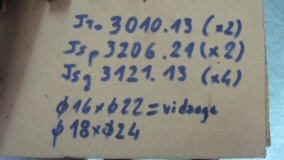 Jto 3010.13 (x2)
Jsp 3206.21 (x2)
Jsq 3121.13 (x4)
φ16xφ22 = vidange
φ18xφ24